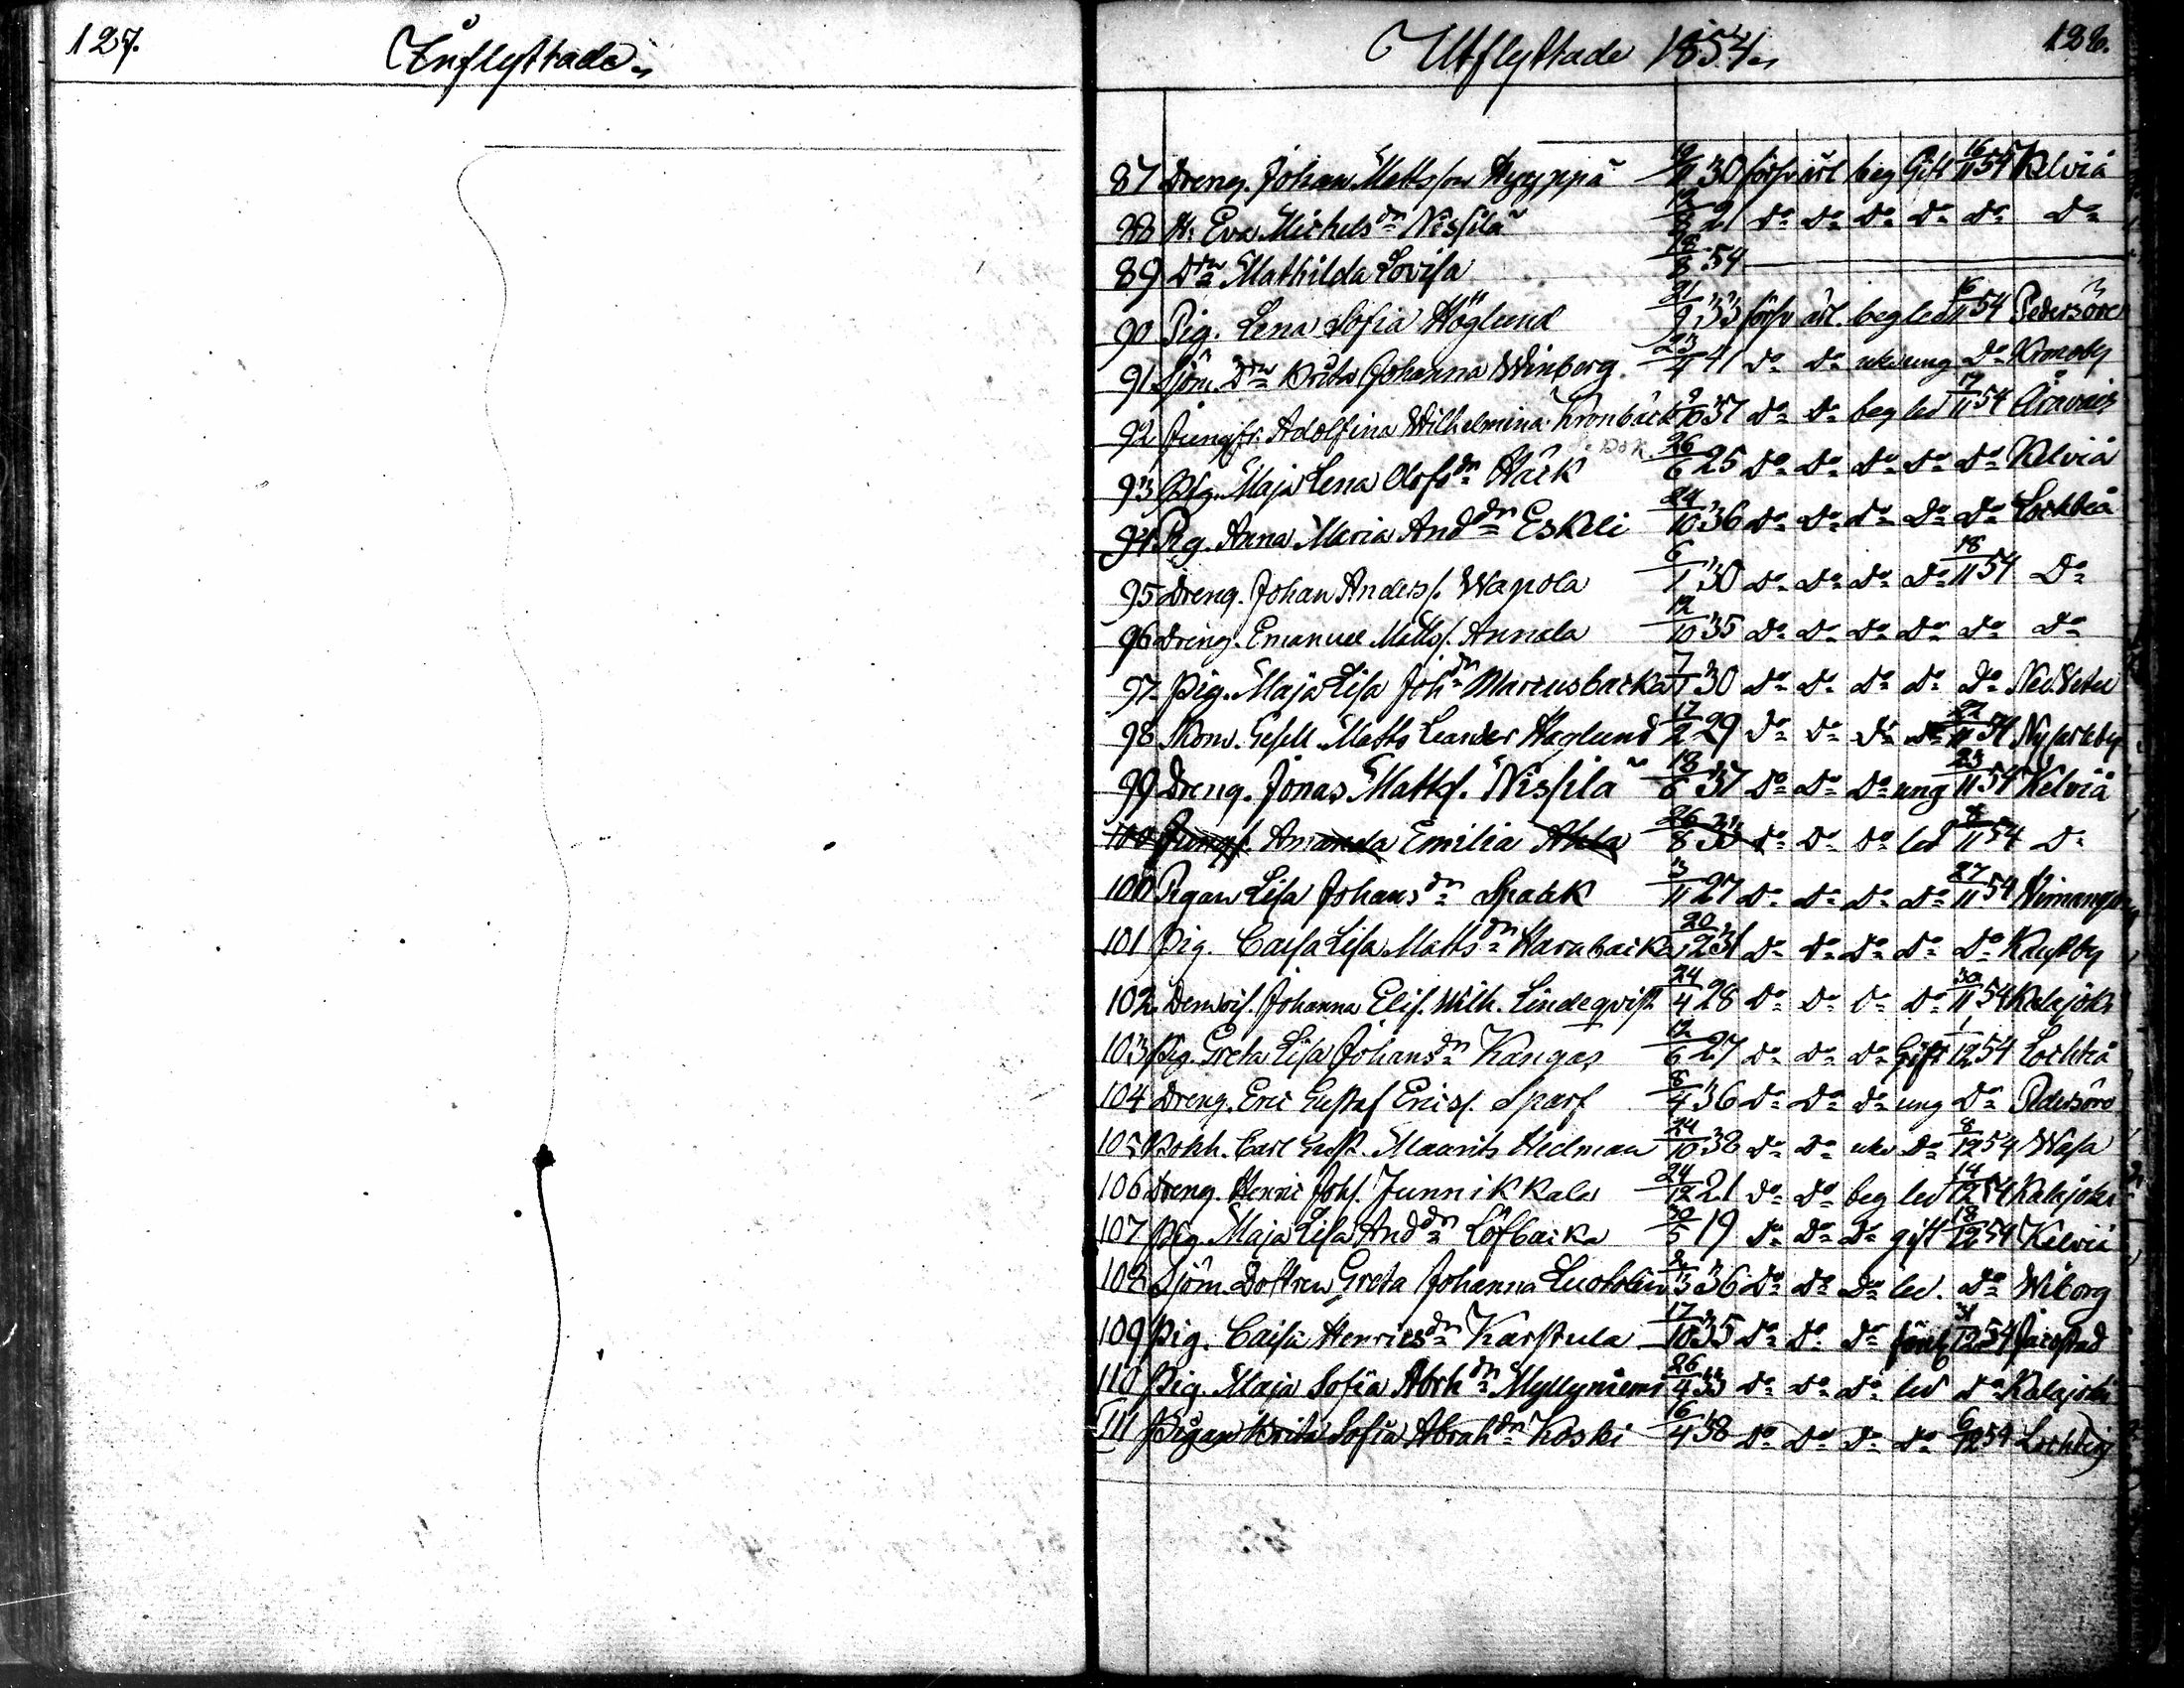 127.
Inflyttade
Utflyttade 1854
128.
87 Dreng. Johan Mattsson Hyyppä 12/11 30 försv ärl beg Gift 16/11 54 Kelviå
88 H. Eva Michelsdr Nissilä 12/8 21 Do Do Do Do Do Do
89 Dtr Mathilda Lovisa 18/8 54
90 Pig. Lena Sofia Höglund 21/9 33 försv ärl. beg led 16/11 54 Pedersöre
91 Sjöm. Dtr Brita Johanna Winberg. 23/4 41 Do Do ung Do Kronoby
92 Jungfr. Adolfina Wilhelmina Kronbäck 9/6 37 Do Do beg led 17/11 54 Oravais
93 Pig. Maja Lena Olofsdr Häck 26/6 25 Do Do Do Do Do Kelviå
94 Pig. Anna Maria Anddr Eskeli 24/10 36 Do Do Do Do Do Lochteå
95 Dreng. Johan Anderss. Wapola 6/1 30 Do Do Do Do 18/11 54 Do
96 Dreng. Emanuel Mattss. Annala 12/10 35 Do Do Do Do Do Do
97. Pig. Maja Lisa Johdr Marcusbacka 7/1 30 Do Do Do Do Do Ned.Vetil
98 Gesell Matts Leander Häglund 17/2 29 Do Do Do Do 22/11 54 Nycarleby
99 Dreng. Jonas Mattss. Nissilä 18/6 37 Do Do Do ung 23/11 54 Kelviå
100 Jungf. Amanda Emilia Ahla 26/8 33 Do Do Do led 8/11 54 Do
100 Pigan Lisa Johansdr Spaak 3/11 27 Do Do Do Do 27/11 54 Himango
101 Pig. Caisa Lisa Mattsdr Harubacka 20/12 31 Do Do Do Do Do Kaustby
102 Demois. Johanna Elis. Wilh. Lindeqvist 24/4 28 Do Do Do Do 30/11 54 Kalajoki
103 Pig. Greta Lisa Johansdr Kangas 12/6 27 Do Do Do Gift 1/12 54 Lochteå
104 Dreng. Eric Gustaf Ericss. Sparf 8/4 36 Do Do Do ung Do Pedersöre
105 Bokh. Carl Gust. Maurits Hedman 24/10 38 Do Do Do 8/12 54 Wasa
106 Dreng. Henric Johs. Junnikkala 24/12 21 Do Do beg led 14/12 54 Kalajoki
107 Pig. Maja Lisa Anddr Löfbacka 30/5 19 Do Do Do gift 18/12 54 Kelviå
108 Sjöm. Dottren Greta Johanna 2/3 36 Do Do Do led. Do Wiborg
109 Pig. Caisa Henricsdr Karstula 17/10 35 Do Do Do 31/12 54 Jacostad
110 Pig. Maja Sofia Abrhdr Myllyniemi 26/4 33 Do Do Do led Do Kalajoki
111 Pigan Brita Sofia Abrahdr Koski 16/4 38 Do Do Do Do 6/12 54